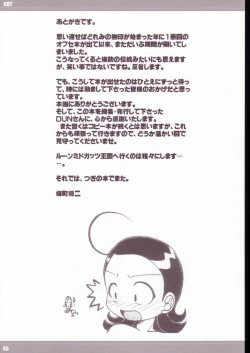 あとがきです。
思い返せばどれみの無印が始まった年に1冊目の
オフセ本が出て以来、まただいぶ期間が開いてし
まいました。
こうなってくると複数の伝統みたいにも思えます
が、笑い事ではないですね。反省します。
でも、こうして本が出せたのはひとえにずっと待っ
て、時には励まして下さった皆様のおかげだと思っ
ています。
本当にありがとうございます。
そして、この本を編集・発行して下さった
DUNさんに、心から感謝いたします。
また暫くはコピー本が続くとは思いますが、これ
からも頑張って行きますので、どうか温かい目で
見守ってくださいませ。
ルーンミドガッツ王国へ行くのは程々にします…
…。
それでは、つぎの本でまた。